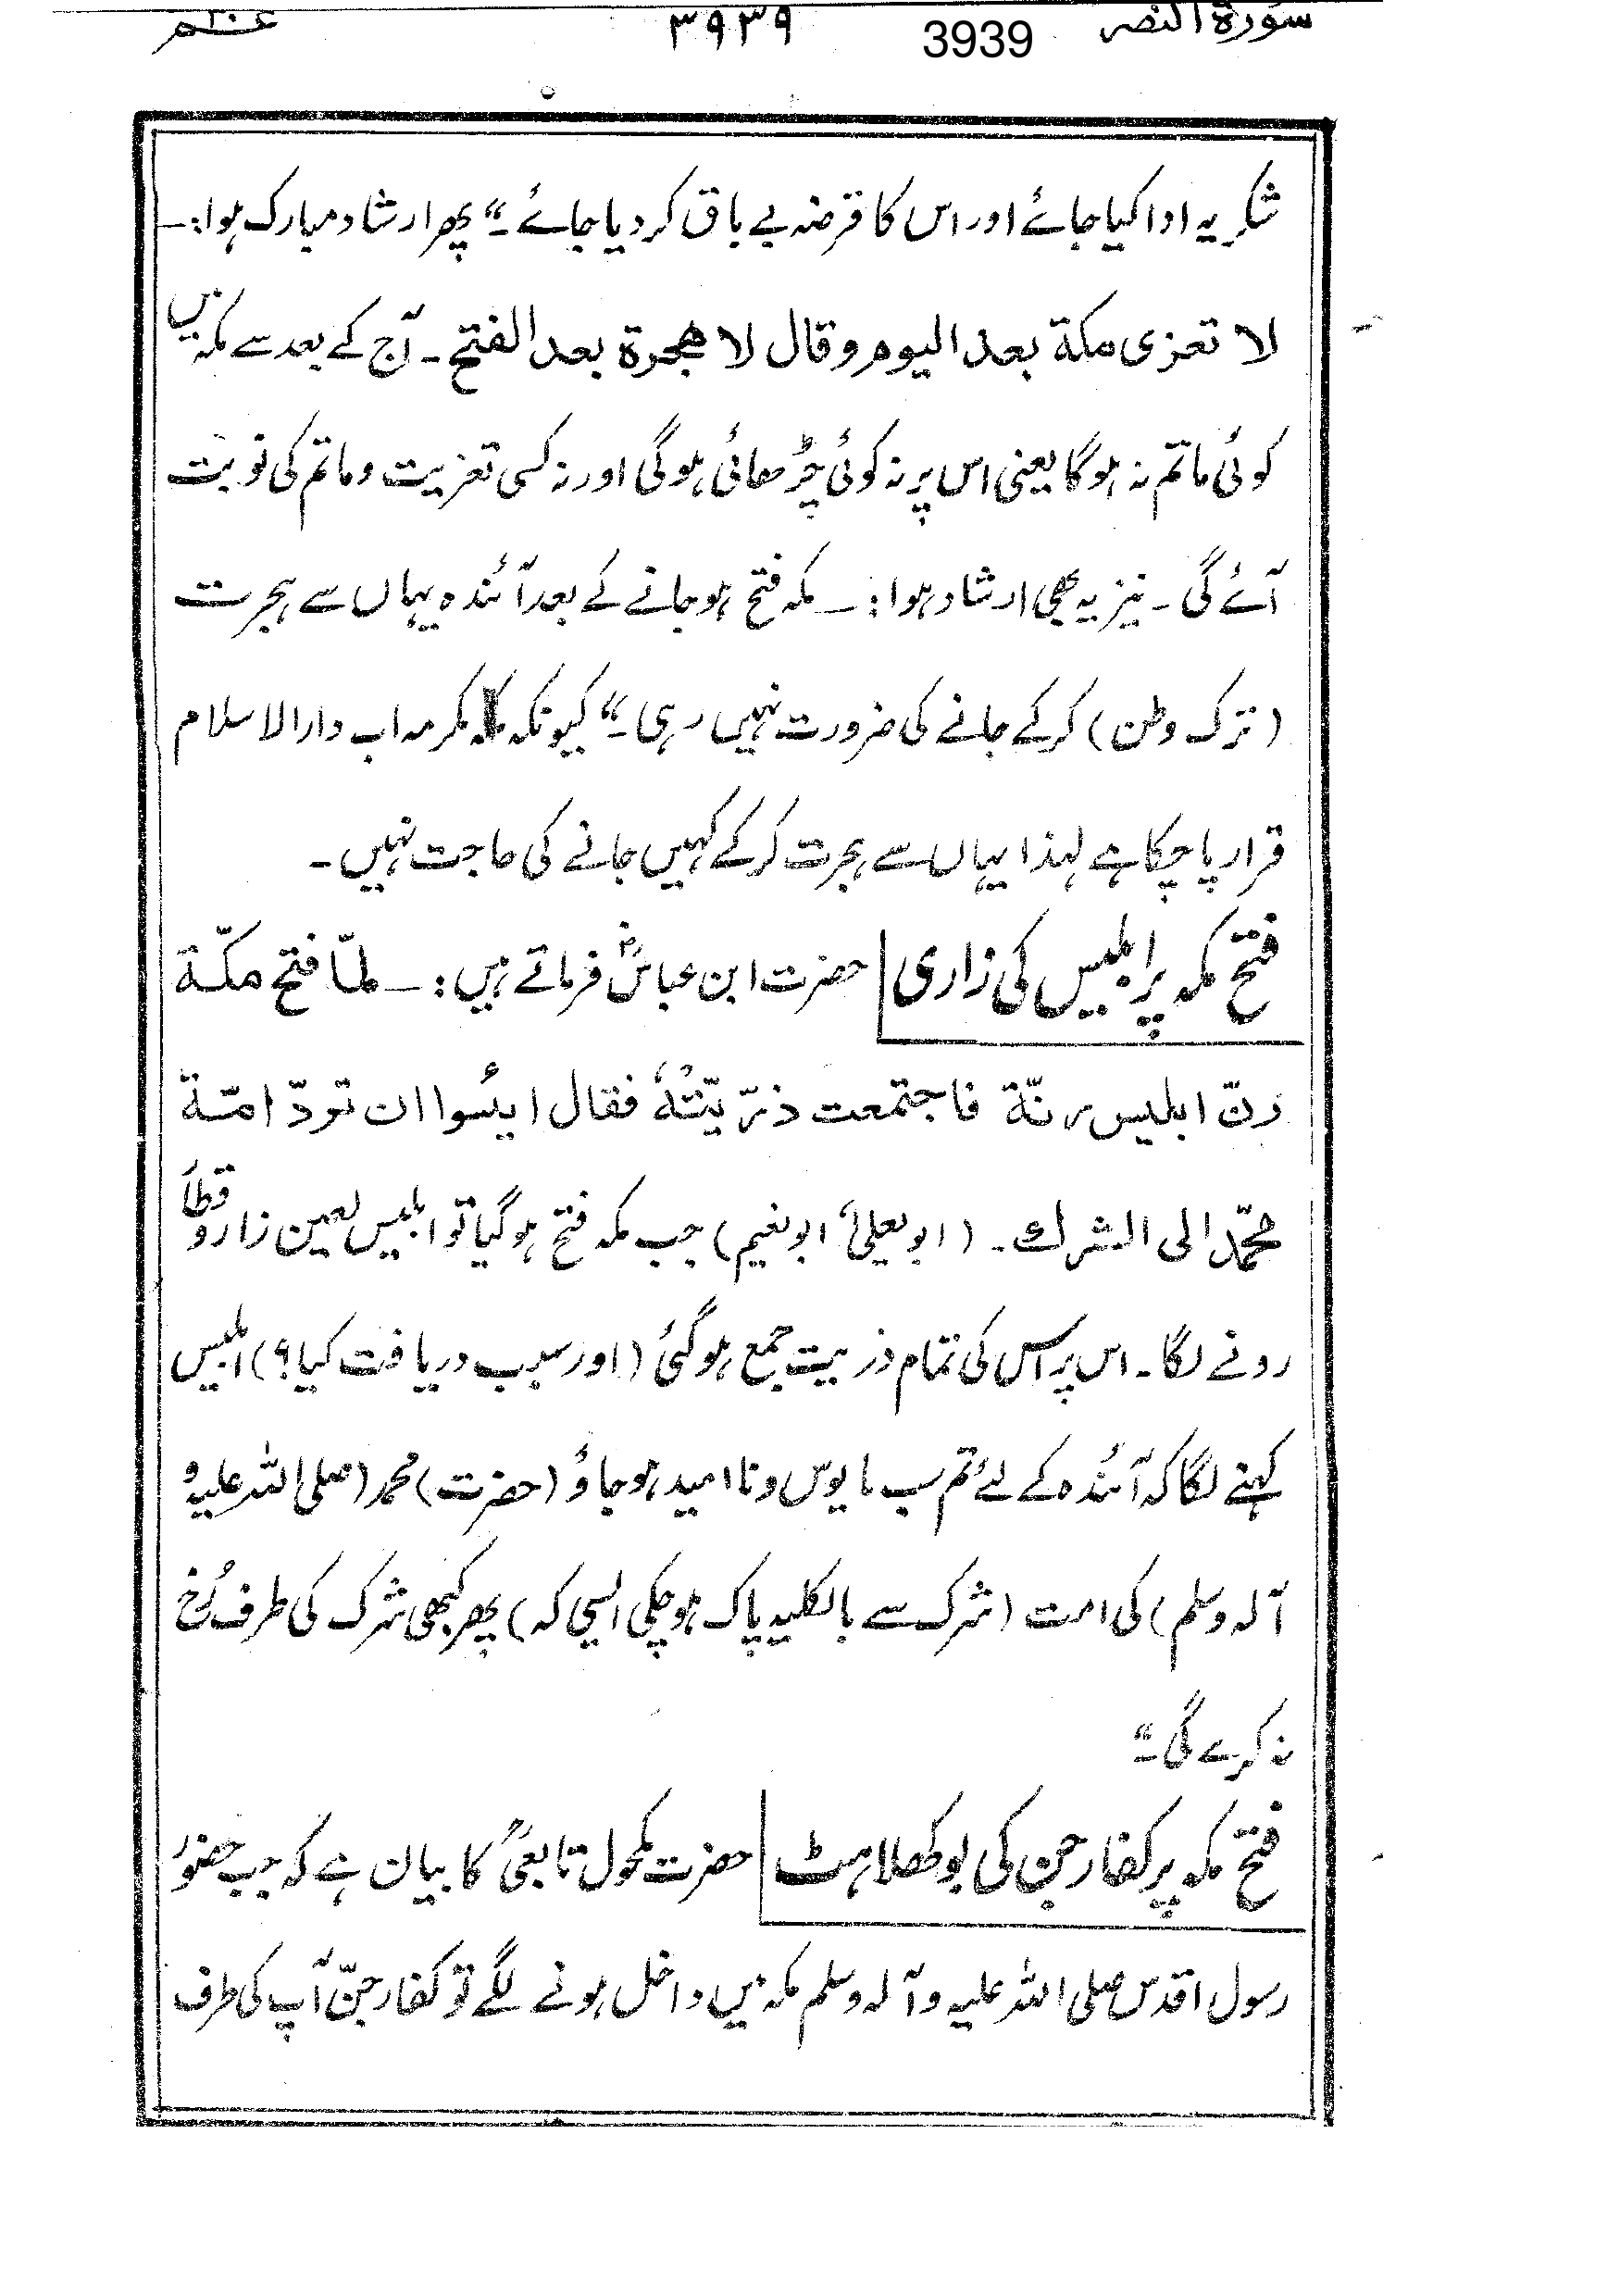 سورة النصر 3939 ۳۹۳۹ عــم
شکریہ ادا کیا جائے اور اس کا قرضہ بے باق کر دیا جائے۔“ پھر ارشاد مبارک ہوا:۔
لا تعزی مکة بعد الیوم وقال لا هجرة بعد الفتح۔ آج کے بعد سے مکہ میں
کوئی ماتم نہ ہوگا یعنی اس پر نہ کوئی چڑھائی ہوگی اور نہ کسی تعزیت و ماتم کی نوبت
آئے گی۔ نیز یہ بھی ارشاد ہوا:۔ مکہ فتح ہو جانے کے بعد آئندہ یہاں سے ہجرت
(ترک وطن) کرکے جانے کی ضرورت نہیں رہی۔“ کیونکہ مکہ مکرمہ اب دارالاسلام
قرار پا چکا ہے لہذا یہاں سے ہجرت کرکے کہیں جانے کی حاجت نہیں۔
فتح مکہ پر ابلیس کی زاری حضرت ابن عباسؓ فرماتے ہیں:۔ لمّا فتح مکّة
رنّ ابلیس رنّة فاجتمعت ذرّیّتُهٗ فقال ایئسوا ان تودّ امّة
محمّد الی الشرك۔ (ابو یعلیٰ، ابو نعیم) جب مکہ فتح ہوگیا تو ابلیس لعین زار و قطار
رونے لگا۔ اس پر اس کی تمام ذریت جمع ہوگئی (اور سبب دریافت کیا؟) ابلیس
کہنے لگا کہ آئندہ کے لئے تم سب مایوس و ناامید ہو جاؤ (حضرت) محمد (صلی اللہ علیہ و
آلہ وسلم) کی امت (شرک سے بالکلیہ پاک ہو چکی ایسی کہ) پھر کبھی شرک کی طرف رُخ
نہ کرے گی۔“
فتح مکہ پر کفار جن کی بوکھلاہٹ حضرت مکحول تابعیؒ کا بیان ہے کہ جب حضورؐ
رسول اقدس صلی اللہ علیہ و آلہ وسلم مکہ میں داخل ہونے لگے تو کفار جنّ آپ کی طرف